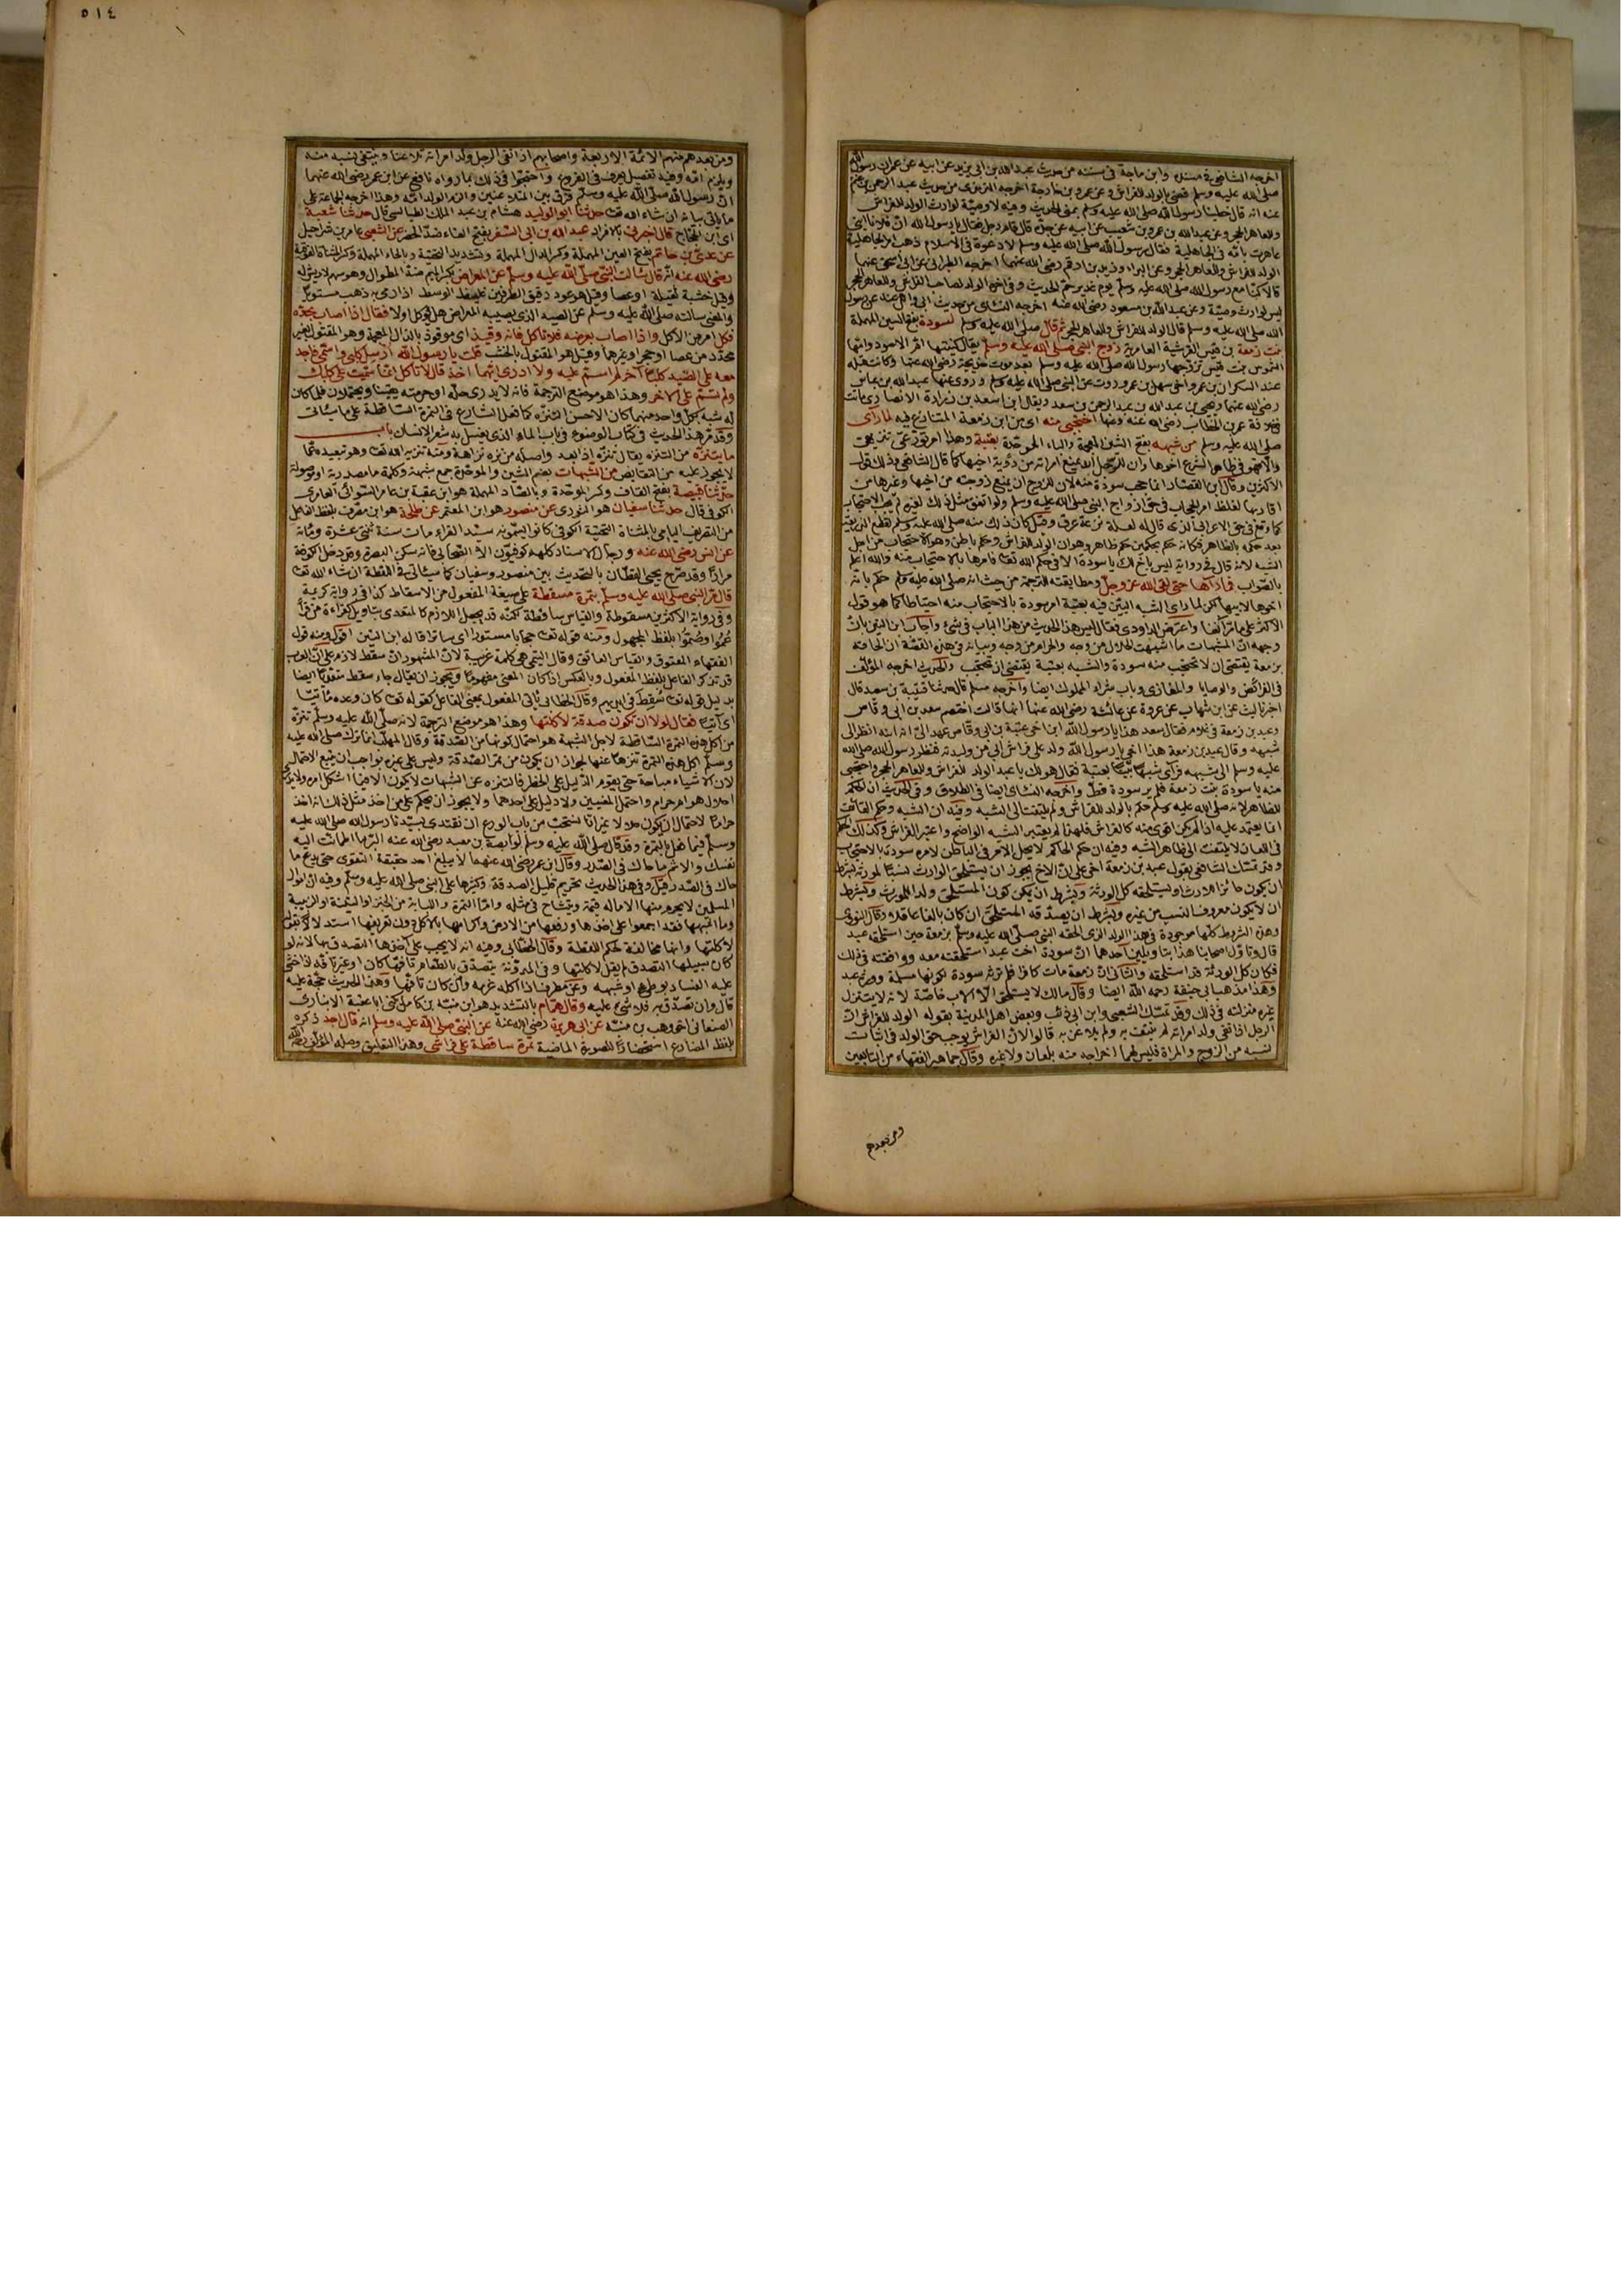 اخرجه الشافعي في مسنده وابن ماجة في سننه من حديث عبد الله بن ابي يزيد عن ابيه عن عمر ان رسول الله
صلى الله عليه وسلم قضى بالولد للفراش وعن عمرو بن خارجة اخرجه الترمذي من حديث عبد الرحمن بن غنم
عنه انه قال خطبنا رسول الله صلى الله عليه وسلم بمنى الحديث وفيه لا وصية لوارث الولد للفراش
وللعاهر الحجر وعن عبد الله بن عمرو بن شعيب عن ابيه عن جده قال قام رجل فقال يا رسول الله ان فلانا ابني
عاهرت بامه في الجاهلية فقال رسول الله صلى الله عليه وسلم لا دعوة في الاسلام ذهب امر الجاهلية
الولد للفراش وللعاهر الحجر وعن البراء وزيد بن ارقم رضي الله عنهما اخرجه الطبراني عن ابي اسحق عنهما
قالا كنا مع رسول الله صلى الله عليه وسلم يوم غدير خم الحديث وفي اخره الولد لصاحب الفراش وللعاهر الحجر
ليس لوارث وصية وعن عبد الله بن مسعود رضي الله عنه اخرجه النسائي من حديث ابي وائل عنه عن رسول
الله صلى الله عليه وسلم قال الولد للفراش وللعاهر الحجر ثم قال صلى الله عليه وسلم لسودة بفتح السين المهملة
بنت زمعة بن قيس القرشية العامرية زوج النبي صلى الله عليه وسلم يقال كنيتها ام الاسود وامها
الشموس بنت قيس تزوجها رسول الله صلى الله عليه وسلم بعد موت خديجة رضي الله عنها وكانت قبله
عند السكران بن عمرو اخي سهيل بن عمرو روت عن النبي صلى الله عليه وسلم وروى عنها عبد الله بن عباس
رضي الله عنهما ويحيى بن عبد الله بن عبد الرحمن بن سعد ويقال ابن اسعد بن زرارة الانصاري ماتت
في خلافة عمر بن الخطاب رضي الله عنه وعنها احتجبي منه اي من ابن زمعة المتنازع فيه لما رأى
صلى الله عليه وسلم من شبهه بفتح الشين المعجمة والباء الموحدة بعتبة وهذا امر تورع
والا فهو في ظاهر الشرع اخوها وان للرجل ان يمنع امرأته من رؤية اخيها كما قال الشافعي وذلك قول
الاكثرين وقال ابن القصار انما حجب سودة منه لان للزوج ان يمنع زوجته من اخيها وغيرها من
اقاربها لغلظ امر الحجاب في حق ازواج النبي صلى الله عليه وسلم ولو اتفق مثل ذلك لغيره لم يجب الاحتجاب
كما وقع في حق الاعرابي الذي قال له لعله نزعه عرق وقيل كان ذلك منه صلى الله عليه وسلم لقطع الذريعة
بعد حكمه بالظاهر فكانه حكم بحكمين حكم ظاهر وهو ان الولد للفراش وحكم باطن وهو الاحتجاب من اجل
الشبه لانه قال في رواية ليس باخ لك يا سودة الا في حكم الله تعالى فامرها بالاحتجاب منه والله اعلم
بالصواب فما رآها حتى لقي الله عز وجل ومطابقته للترجمة من حيث انه صلى الله عليه وسلم حكم بانه
اخوها لابيها لكن لما رأى الشبه البين فيه بعتبة امر سودة بالاحتجاب منه احتياطا كما هو قول
الاكثر على ما مر آنفا واعترض الداودي فقال ليس هذا الحديث من هذا الباب في شيء واجاب ابن التين بان
وجهه ان المشبهات ما اشبهت الحلال من وجه والحرام من وجه وبيانه في هذه القصة ان الحاقه
بزمعة يقتضي ان لا تحتجب منه سودة والشبه بعتبة يقتضي ان تحتجب والحديث اخرجه المؤلف
في الفرائض والوصايا والمغازي وباب شراء المملوك ايضا واخرجه مسلم قال حدثنا قتيبة بن سعيد قال
اخبرنا ليث عن ابن شهاب عن عروة عن عائشة رضي الله عنها انها قالت اختصم سعد بن ابي وقاص
وعبد بن زمعة في غلام فقال سعد هذا يا رسول الله ابن اخي عتبة بن ابي وقاص عهد الي انه ابنه انظر الى
شبهه وقال عبد بن زمعة هذا اخي يا رسول الله ولد على فراش ابي من وليدته فنظر رسول الله صلى الله
عليه وسلم الى شبهه فرأى شبها بينا بعتبة فقال هو لك يا عبد الولد للفراش وللعاهر الحجر واحتجبي
منه يا سودة بنت زمعة فلم ير سودة قط واخرجه النسائي ايضا في الطلاق وفي الحديث ان الحكم
للظاهر لانه صلى الله عليه وسلم حكم بالولد للفراش ولم يلتفت الى الشبه وفيه ان الشبه وحكم القائف
انما يعتمد عليه اذا لم يكن اقوى منه كالفراش فلهذا لم يعتبر الشبه الواضح واعتبر الفراش وكذلك الحكم
في اللعان لا يلتفت الى ظاهر الشبه وفيه ان حكم الحاكم لا يحل الامر في الباطن لامره سودة بالاحتجاب
وقد تمسك الشافعي بقول عبد بن زمعة اخي على ان الاخ يجوز ان يستلحق الوارث نسبا لمورثه بشرط
ان يكون حائزا للارث او يستلحقه كل الورثة وبشرط ان يمكن كون المستلحق ولد المورث وبشرط
ان لا يكون معروف النسب من غيره وبشرط ان يصدقه المستلحق ان كان بالغا عاقلا وقال النووي
وهذه الشروط كلها موجودة في هذا الولد الذي الحقه النبي صلى الله عليه وسلم بزمعة حين استلحقه عبد
قال وتأول اصحابنا هذا بتأويلين احدهما ان سودة اخت عبد استلحقته معه ووافقته في ذلك
فكان كل الورثة قد استلحقه والثاني ان زمعة مات كافرا فلم ترثه سودة لكونها مسلمة وورثه عبد
وهذا مذهب ابي حنيفة رحمه الله ايضا وقال مالك لا يستلحق الا الاب خاصة لانه لا يتنزل
غيره منزلته في ذلك وقد تمسك الشعبي وابن ابي ذئب وبعض اهل المدينة بقوله الولد للفراش ان
الرجل اذا نفى ولد امرأته لم ينتف به ولم يلاعن به قالوا لان الفراش يوجب حق الولد في اثبات
نسبه من الزوج والمرأة فليس لهما اخراجه منه بلعان ولا غيره وقال جماهير الفقهاء من التابعين
ومن بعدهم
٥١٤
ومن بعدهم منهم الائمة الاربعة واصحابهم اذا نفى الرجل ولد امرأته تلاعنا وينتفي نسبه منه
ويلزم امه وفيه تفصيل يعرف في الفروع واحتجوا في ذلك بما رواه نافع عن ابن عمر رضي الله عنهما
ان رسول الله صلى الله عليه وسلم فرق بين المتلاعنين والزم الولد امه وهذا اخرجه الجماعة على
ما يأتي بيانه ان شاء الله تعالى حدثنا ابو الوليد هشام بن عبد الملك الطيالسي قال حدثنا شعبة
اي ابن الحجاج قال اخبرني بالافراد عبد الله بن ابي السفر بفتح الفاء ضد الحضر عن الشعبي عامر بن شراحيل
عن عدي بن حاتم بفتح العين المهملة وكسر الدال المهملة وتشديد التحتية وبالحاء المهملة وكسر المثناة الفوقية
رضي الله عنه انه قال سألت النبي صلى الله عليه وسلم عن المعراض بكسر الميم ضد المطوال وهو سهم لا ريش له
وقيل خشبة ثقيلة او عصا وقيل هو عود دقيق الطرفين غليظ الوسط اذا رمي به ذهب مستويا
والمعنى سألته صلى الله عليه وسلم عن الصيد الذي يصيبه المعراض هل يؤكل او لا فقال اذا اصاب بحده
فكل امر من الاكل واذا اصاب بعرضه فلا تأكل فانه وقيذ اي موقوذ بالذال المعجمة وهو المقتول بغير
محدد من عصا او حجر او غيرهما وقيل هو المقتول بالخشب قلت يا رسول الله ارسل كلبي واسمي فاجد
معه على الصيد كلبا آخر لم اسم عليه ولا ادري ايهما اخذ قال لا تأكل انما سميت على كلبك
ولم تسم على الآخر وهذا هو موضع الترجمة فانه لا يدري حله او حرمته يقينا ويحتملان فلما كان
له شبه بكل واحد منهما كان الاحسن التنزه كما فعل الشارع في التمرة الساقطة على ما سيأتي
وقد مر هذا الحديث في كتاب الوضوء في باب الماء الذي يغسل به شعر الانسان باب
ما يتنزه من التنزه يقال تنزه اذا بعد واصله من نزه نزاهة ومنه تنزيه الله تعالى وهو تبعيده عما
لا يجوز عليه من النقائص من الشبهات بضم الشين والموحدة جمع شبهة وكلمة ما مصدرية او موصولة
حدثنا قبيصة بفتح القاف وكسر الموحدة وبالصاد المهملة هو ابن عقبة بن عامر السوائي العامري
الكوفي قال حدثنا سفيان هو الثوري عن منصور هو ابن المعتمر عن طلحة هو ابن مصرف بلفظ الفاعل
من التصريف اليامي بالمثناة التحتية الكوفي كانوا يسمونه سيد القراء مات سنة ثنتي عشرة ومائة
عن انس رضي الله عنه ورجال الاسناد كلهم كوفيون الا الصحابي فانه سكن البصرة وقد دخل الكوفة
مرارا وقد صرح يحيى القطان بالتحديث بين منصور وسفيان كما سيأتي في اللقطة ان شاء الله تعالى
قال مر النبي صلى الله عليه وسلم بتمرة مسقطة على صيغة المفعول من الاسقاط كذا في رواية كريمة
وفي رواية الاكثرين مسقوطة والقياس ساقطة لكنه قد يجعل اللازم كالمتعدي بتأويل كقراءة من قرأ
عموا وصموا بلفظ المجهول ومنه قوله تعالى حجابا مستورا اي ساترا قاله ابن التين اقول ومنه قول
الفقهاء المعتوق والقياس العاتق وقال التيمي هي كلمة غريبة لان المشهور ان سقط لازم على ان العرب
قد تذكر الفاعل بلفظ المفعول وبالعكس اذا كان المعنى مفهوما ويجوز ان يقال جاء سقط متعديا ايضا
بدليل قوله تعالى سقط في ايديهم وقال الخطابي يأتي المفعول بمعنى الفاعل كقوله تعالى كان وعده مأتيا
اي آتيا فقال لولا ان تكون صدقة لاكلتها وهذا هو موضع الترجمة لانه صلى الله عليه وسلم تنزه
من اكل هذه التمرة الساقطة لاجل الشبهة هو احتمال كونها من الصدقة وقال المهلب انما ترك صلى الله عليه
وسلم اكل هذه التمرة تنزها عنها لجواز ان يكون من تمر الصدقة وليس على غيره بواجب ان يتبع الاحتمال
لان الاشياء مباحة حتى يقوم الدليل على الحظر فالتنزه عن الشبهات لا يكون الا فيما اشكل امره ولا يدرى
احلال هو ام حرام واحتمل المعنيين ولا دليل على احدهما ولا يجوز ان يحكم على من اخذ مثل ذلك انه اخذ
حراما لاحتمال ان يكون حلالا غير انا نستحب من باب الورع ان نقتدي بسيدنا رسول الله صلى الله عليه
وسلم فيما فعل بالتمرة وقد قال صلى الله عليه وسلم لوابصة بن معبد رضي الله عنه البر ما اطمأنت اليه
نفسك والاثم ما حاك في الصدر وقال ابن عمر رضي الله عنهما لا يبلغ احد حقيقة التقوى حتى يدع ما
حاك في الصدر قيل وفي هذا الحديث تحريم قليل الصدقة وكثيرها على النبي صلى الله عليه وسلم وفيه ان اموال
المسلمين لا يحرم منها الا ما له قيمة ويتشاح في مثله واما التمرة واللبابة من الخبز او التينة او الزبيبة
وما اشبهها فقد اجمعوا على اخذها ورفعها من الارض واكرامها بالاكل دون تعريفها استدلالا بقوله
لاكلتها وانها مخالفة لحكم اللقطة وقال الخطابي وفيه انه لا يجب على آخذها التصدق بها لانه لو
كان سبيلها التصدق لم يقل لاكلتها وفي المدونة يتصدق بالطعام تافها كان او غير تافه اذا خشي
عليه الفساد بوطء او شبهه وعن مطرف اذا اكله غرمه وان كان تافها وهذا الحديث حجة عليه
قال وان تصدق به فلا شيء عليه وقال همام بالتشديد هو ابن منبه بن كامل يكنى ابا عقبة الابناوي
الصنعاني اخو وهب بن منبه عن ابي هريرة رضي الله عنه عن النبي صلى الله عليه وسلم انه قال اجد ذكره
بلفظ المضارع استحضارا للصورة الماضية تمرة ساقطة على فراشي وهذا التعليق وصله المؤلف رحمه الله